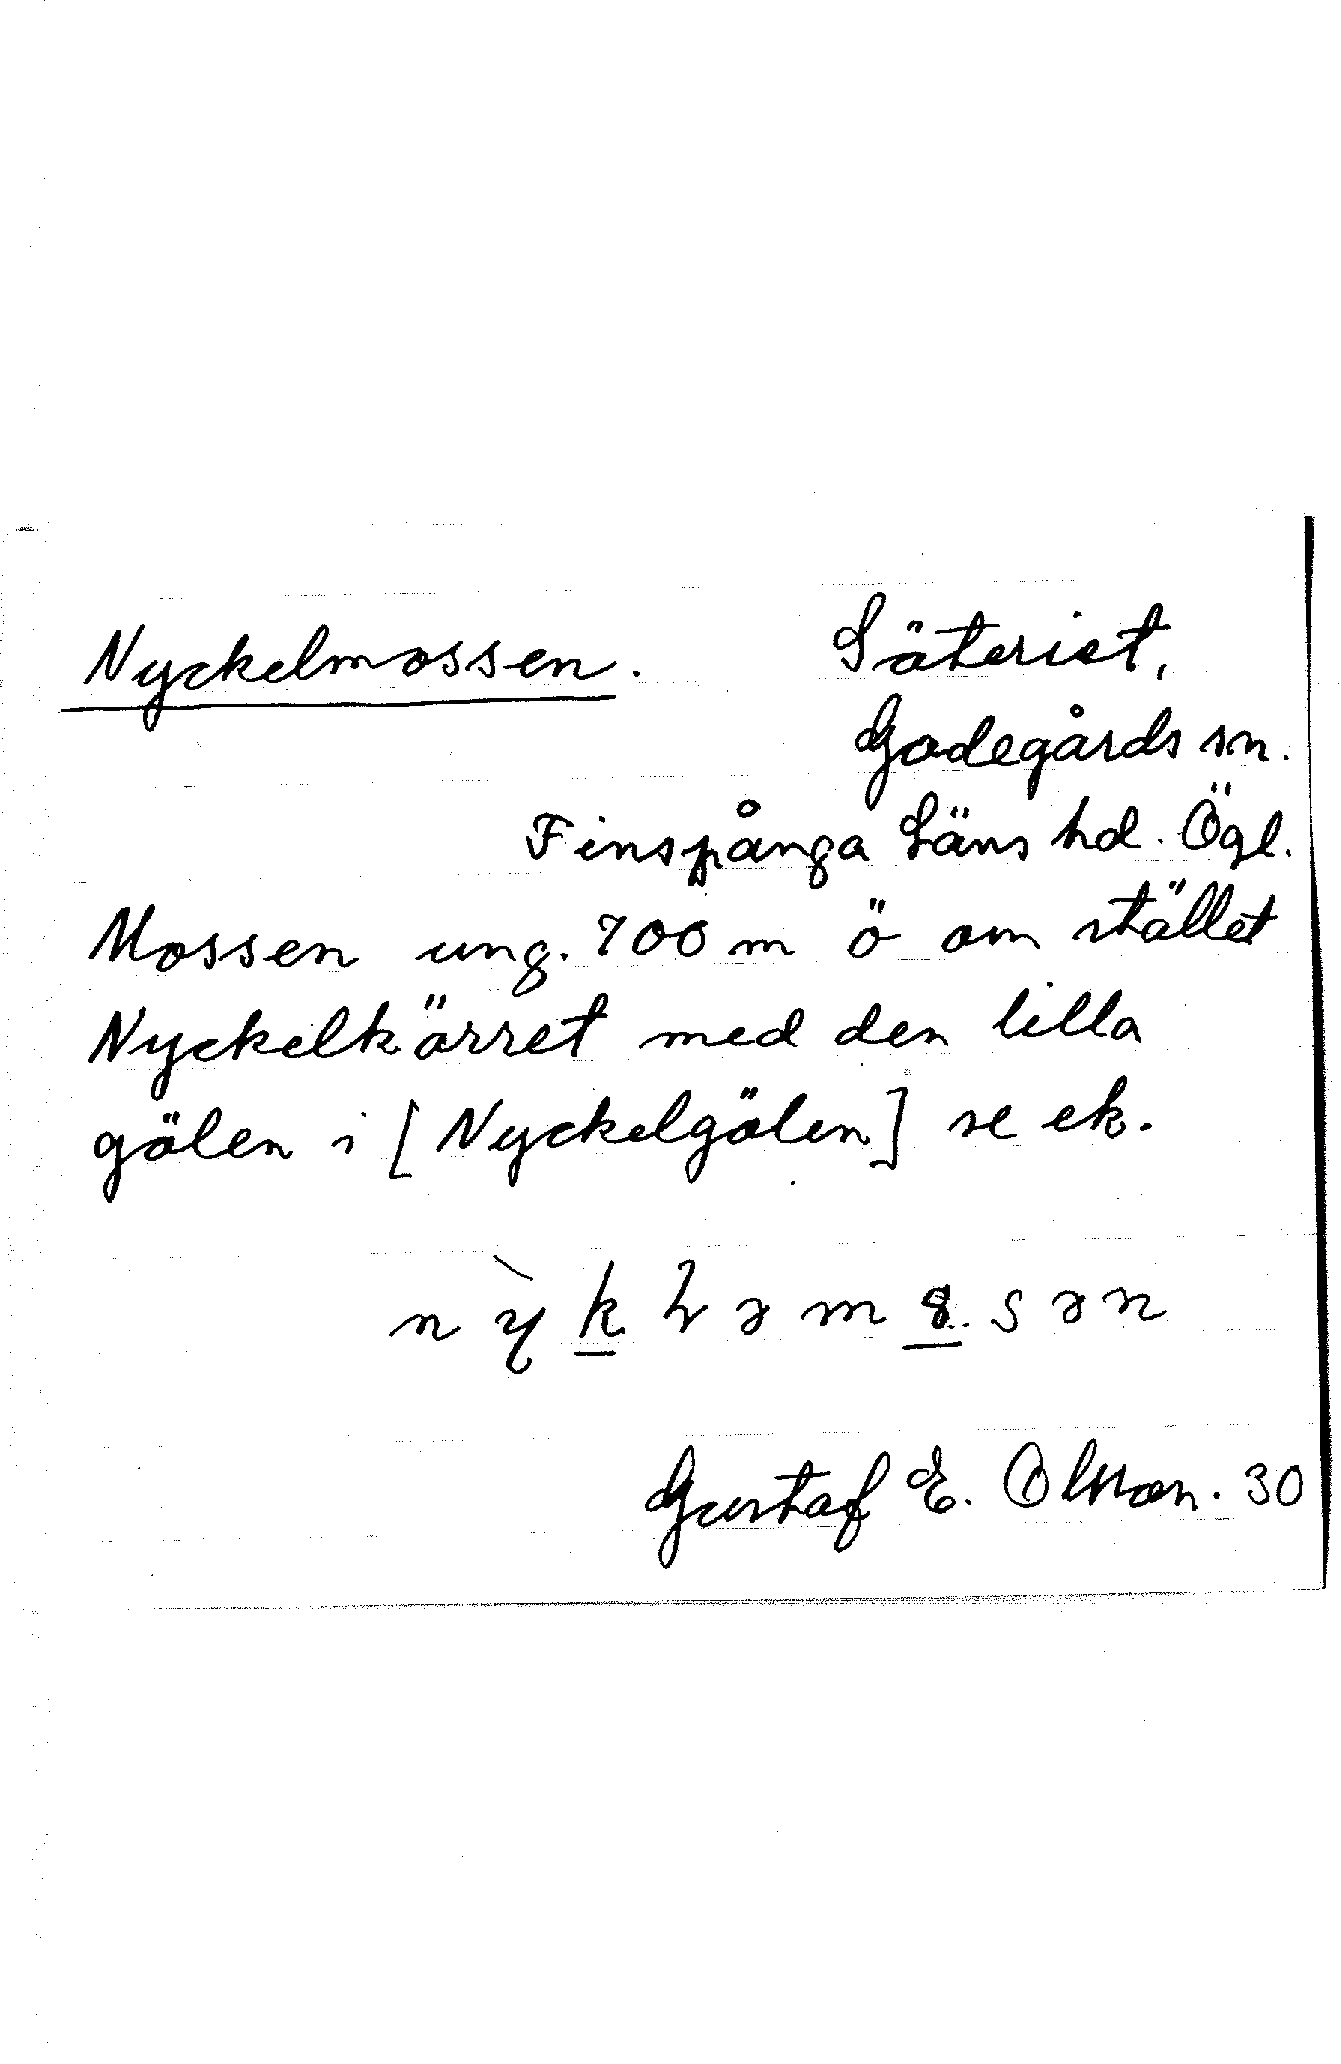 Nyckelmossen. Säteriet,
Godegårds sn.
Finspånga Läns hd. Ögl.
Mossen ung. 700 m ö om stället
Nyckelkärret med den lilla
gölen i [Nyckelgölen] se ek.
Gustaf E. Olsson. 30